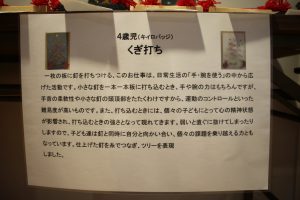 4歳児(キイロバッジ)
くぎ打ち
一枚の板に釘を打ちつける、このお仕事は、日常生活の「手・腕を使う」の中から広
げた活動です。小さな釘を一本一本板に打ち込むとき、手や腕の力はもちろんですが、
手首の柔軟性や小さな釘の頭頂部をたたくわけですから、運動のコントロールといった
難易度が高いものです。また、打ち込むときには、個々の子どもにとって心の精神状態
が影響され、打ち込むときの強さとなって現れてきます。弱いと直ぐに抜けてしまったり
しますので、子ども達は釘と同時に自分と向かい合い、個々の課題を乗り越える力とも
なっています。仕上げた釘を糸でつなぎ、ツリーを表現
しました。